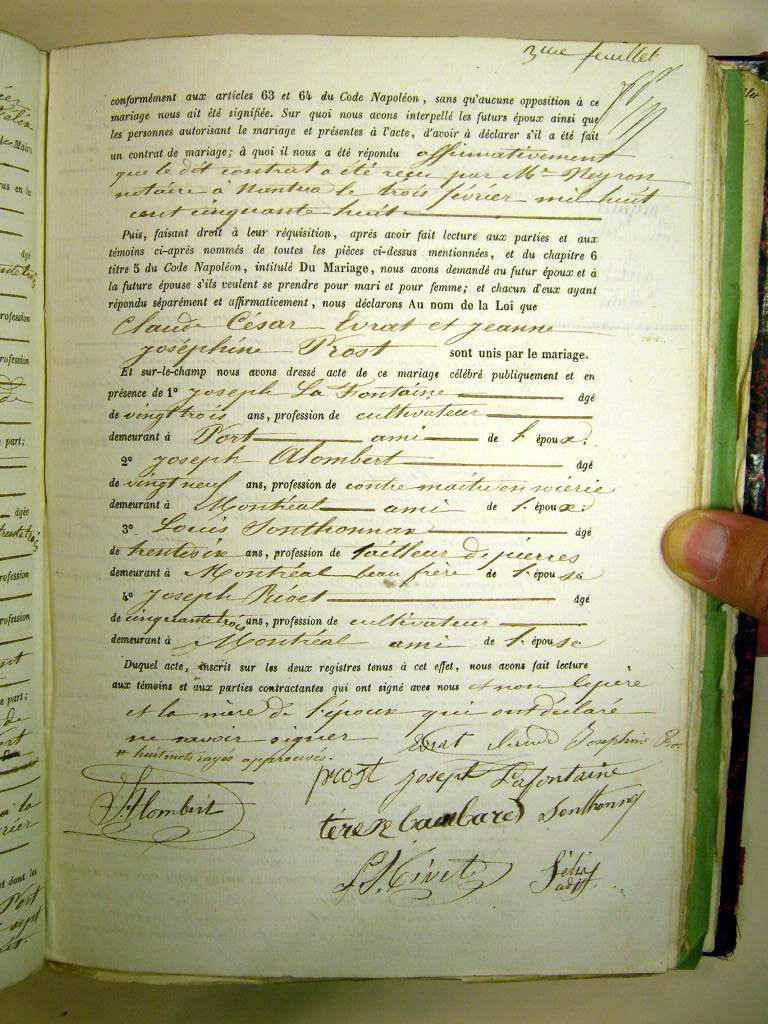 3me feuillet
conformément aux articles 63 et 64 du Code Napoléon, sans qu'aucune opposition à ce
mariage nous ait été signifiée. Sur quoi nous avons interpellé les futurs époux ainsi que
les personnes autorisant le mariage et présentes à l'acte, d'avoir à déclarer s'il a été fait
un contrat de mariage; à quoi il nous a été répondu affirmativement
que le dit contrat a été reçu par Me Neyron
notaire à Nantua le trois février mil huit
cent cinquante huit
Puis, faisant droit à leur réquisition, après avoir fait lecture aux parties et aux
témoins ci-après nommés de toutes les pièces ci-dessus mentionnées, et du chapitre 6
titre 5 du Code Napoléon, intitulé Du Mariage, nous avons demandé au futur époux et à
la future épouse s'ils veulent se prendre pour mari et pour femme; et chacun d'eux ayant
répondu séparément et affirmativement, nous déclarons Au nom de la Loi que
Claude César Evrat et Jeanne
Joséphine Prost sont unis par le mariage.
Et sur-le-champ nous avons dressé acte de ce mariage célébré publiquement et en
présence de 1° Joseph La Fontaine âgé
de vingt trois ans, profession de cultivateur
demeurant à Port ami de l'époux;
2° Joseph Alombert âgé
de vingt neuf ans, profession de contre maître en soierie
demeurant à Montréal ami de l'époux;
3° Louis Sonthonnax âgé
de ans, profession de tailleur de pierres
demeurant à Montréal beau frère de l'épouse
4° Joseph âgé
de cinquante trois ans, profession de cultivateur
demeurant à Montréal ami de l'épouse
Duquel acte, inscrit sur les deux registres tenus à cet effet, nous avons fait lecture
aux témoins et aux parties contractantes qui ont signé avec nous et non le père
et la mère de l'époux qui ont déclaré
ne savoir signer
huit mots rayés approuvés. Evrat Claude Joséphine
prost Joseph Lafontaine
Alombert